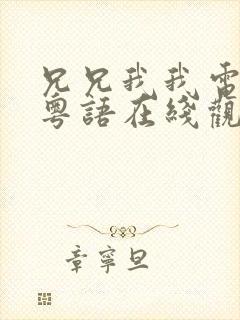 兄兄我我電
粵語在綫觀
章寧旦